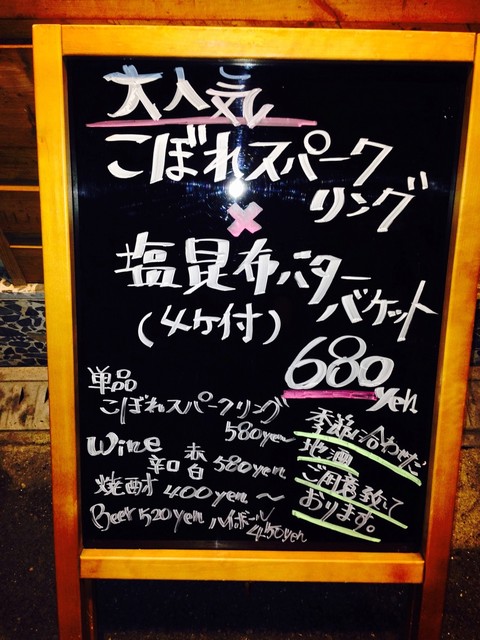 大人気
こぼれスパーク
リング
×
塩昆布バター
バケット
(4ケ付)
680
yen
単品
こぼれスパークリング
580yen
Wine 赤
辛口 白 580yen
焼酎 400yen 〜
Beer 520yen ハイボール
450yen
季節に合わせた
地酒
ご用意致して
おります。